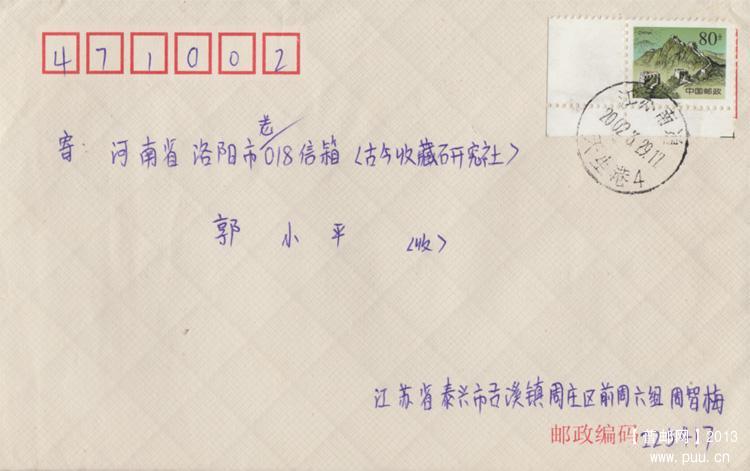 471002
CHINA 80分
中国邮政
江苏南通
2002.3.29.17
天生港4
寄 河南省洛阳市老018信箱〈古今收藏研究社〉
郭小平 〈收〉
江苏省泰兴市古溪镇周庄区前周六组周智梅
邮政编码
【首邮网】2013
www.puu.cn